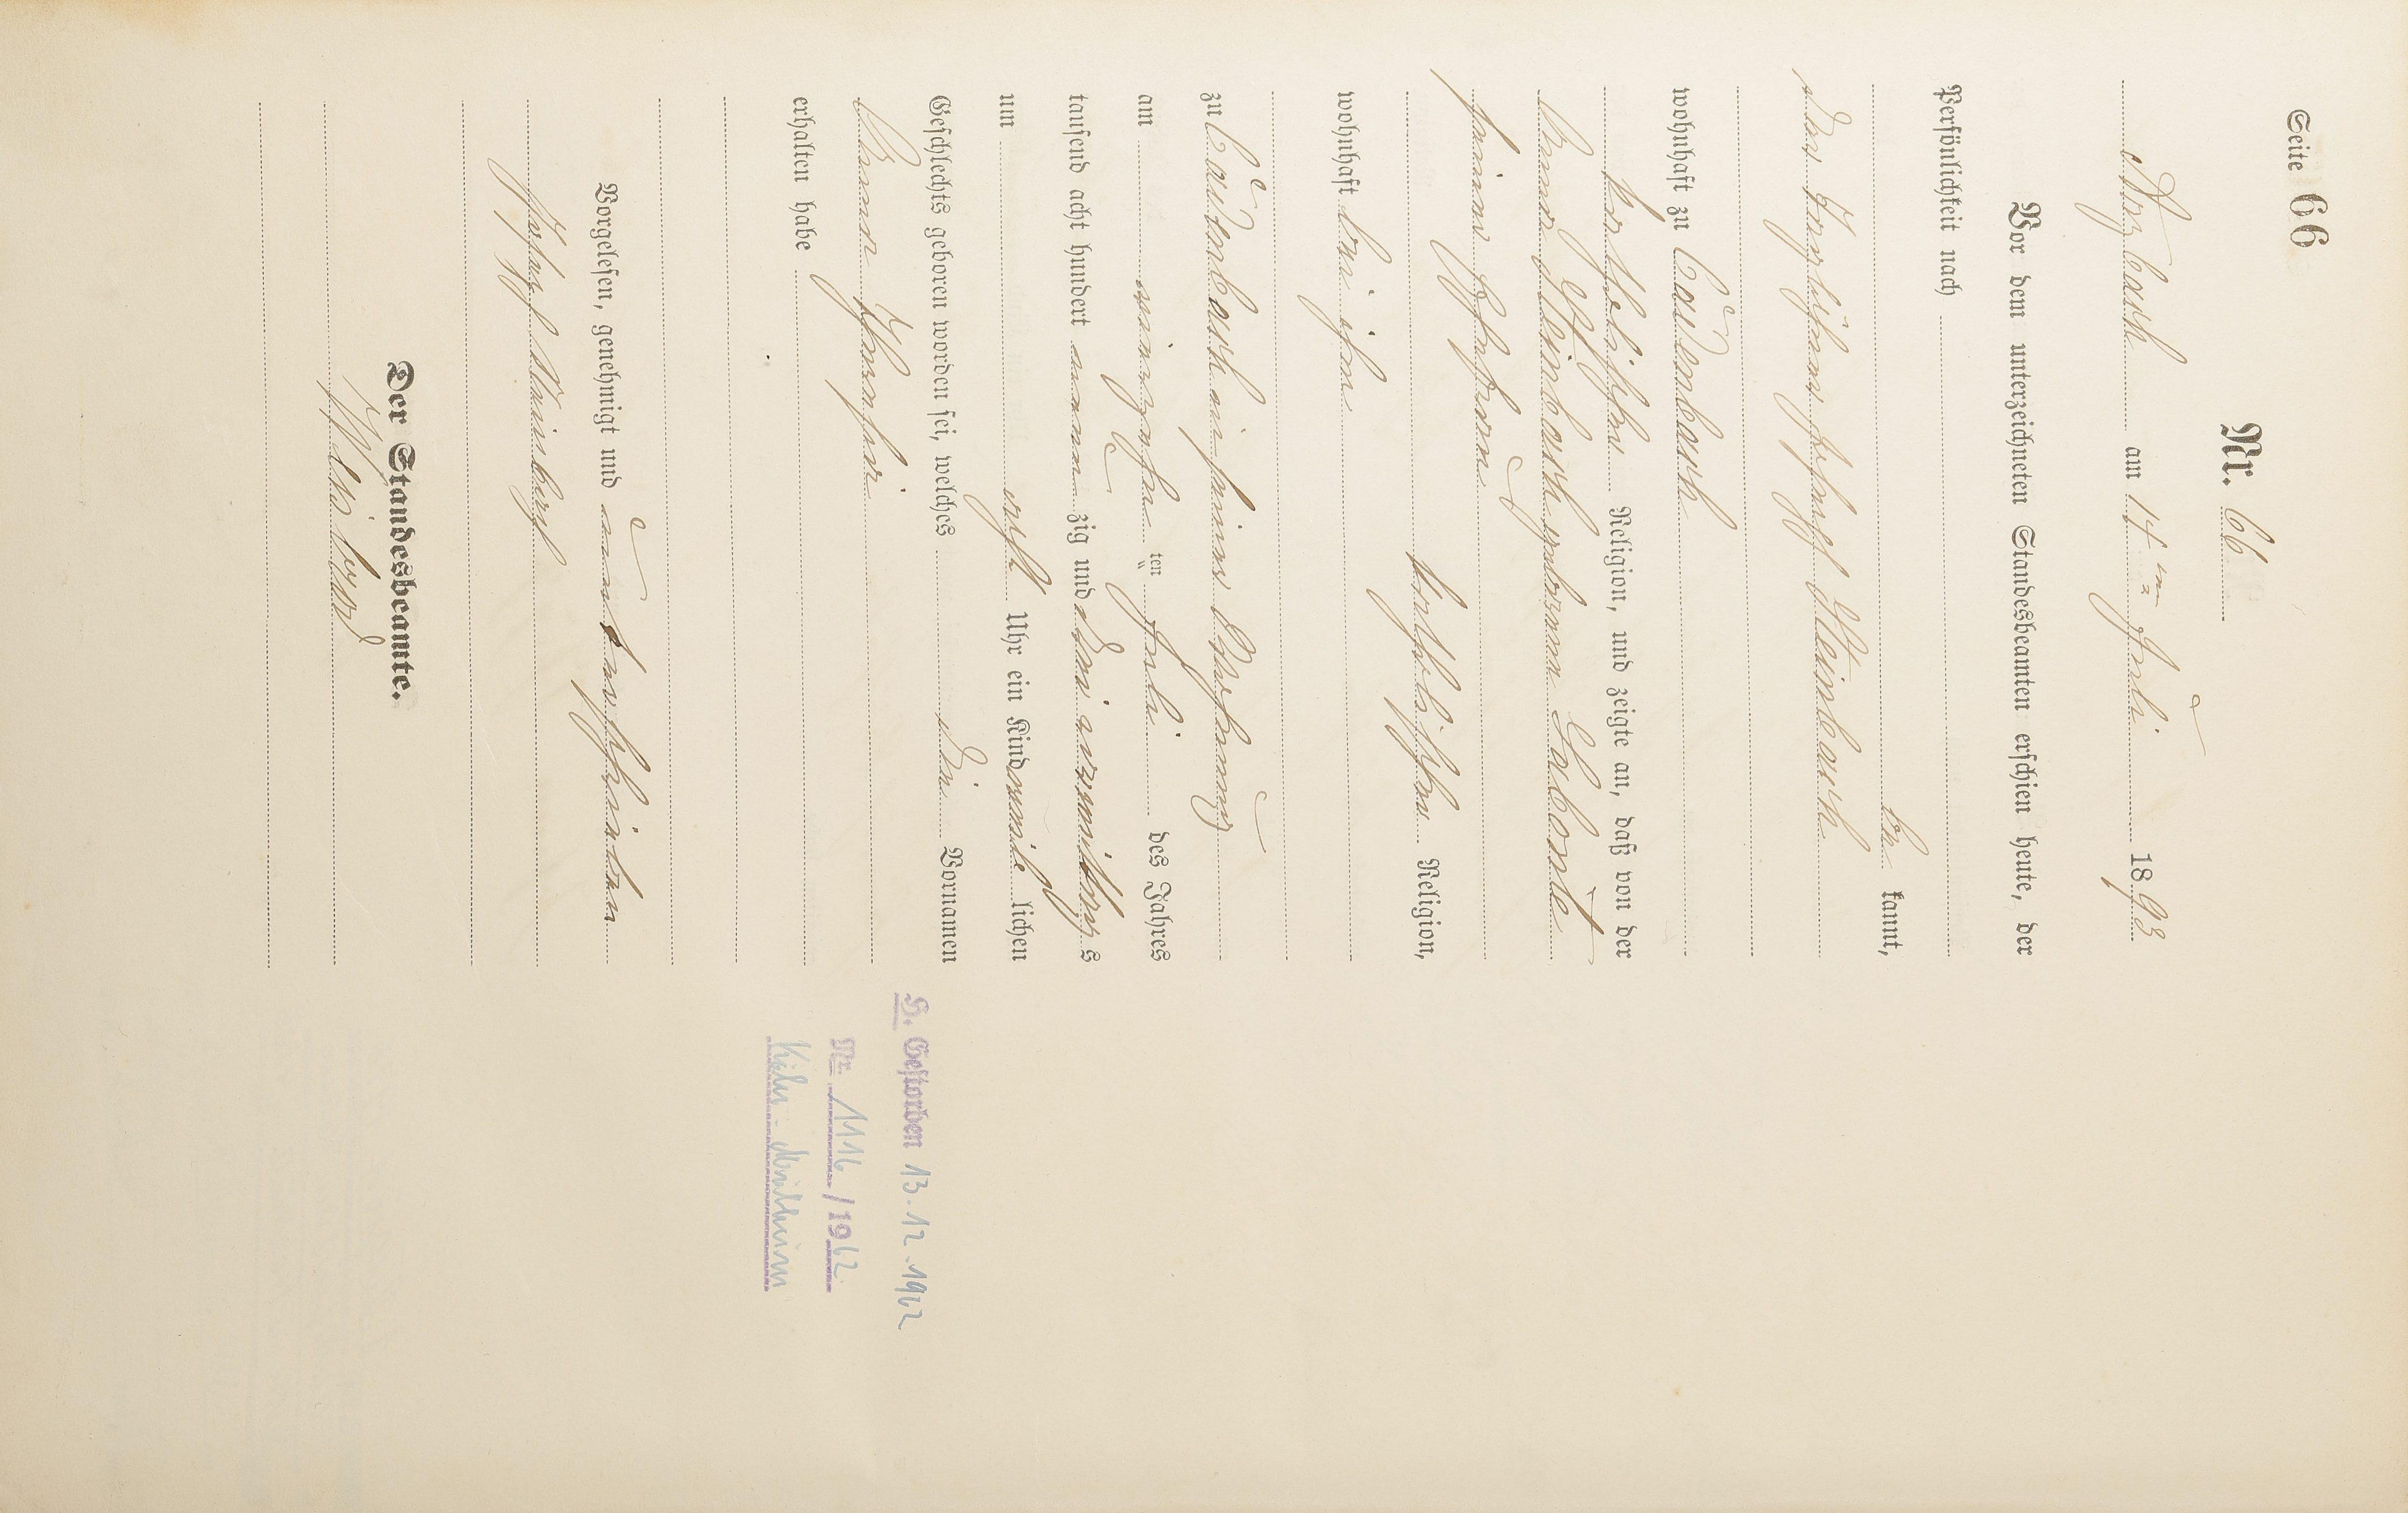 Seite 66
Nr. 66
Arzbach am 14ten Juli 1893
Vor dem unterzeichneten Standesbeamten erschien heute, der
Persönlichkeit nach
be kannt,
der Taglöhner Josef Steinbach
wohnhaft zu Cadenbach
katholischer Religion, und zeigte an, daß von der
Anna Steinbach geborenen Labonte
seiner Ehefrau
katholischer Religion,
wohnhaft bei ihm
zu Cadenbach in seiner Wohnung
am vierzehnten Juli des Jahres
tausend acht hundert neunzig und drei vormittags
um acht Uhr ein Kind weiblichen
Geschlechts geboren worden sei, welches die Vornamen
Anna
erhalten habe
Vorgelesen, genehmigt und unterschrieben
Josef Steinbach
Der Standesbeamte.
H. Gestorben 13.12.1962
Nr. 1116/1962
Köln-Mülheim